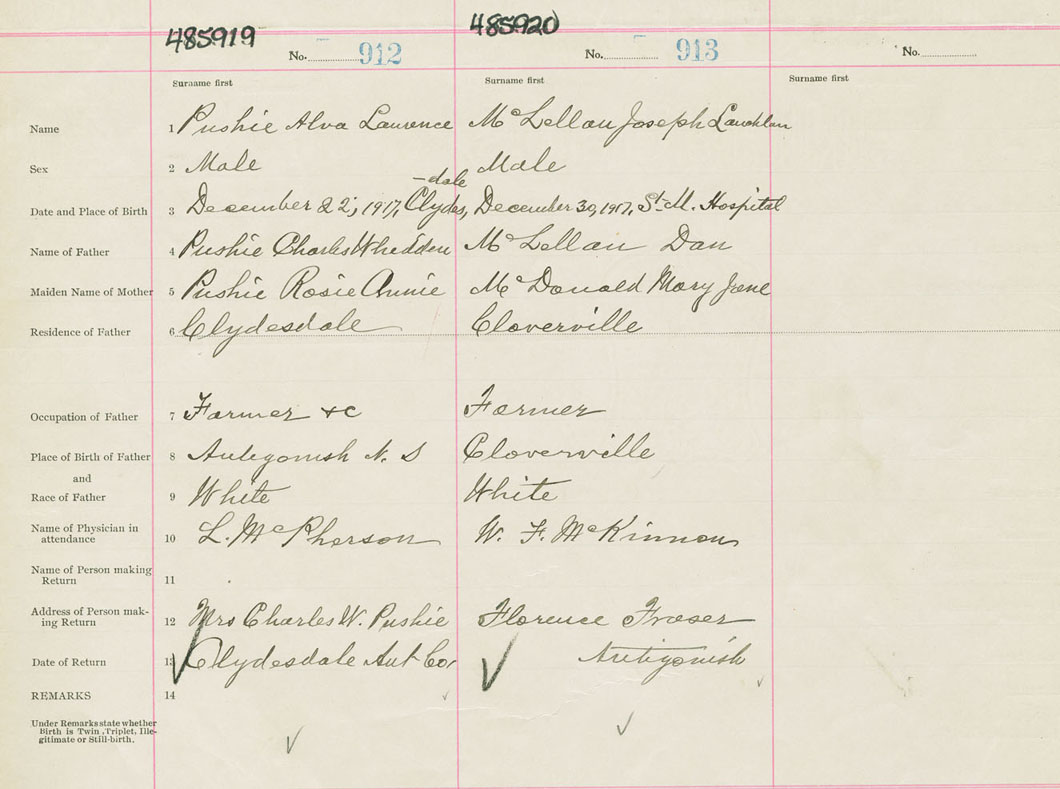 485919 485920
No. 912 No. 913 No.
Surname first Surname first Surname first
Name 1 Pushie Alva Lawrence McLellan Joseph Lauchlan
Sex 2 Male Male
-dale
Date and Place of Birth 3 December 22, 1917, Clydes, December 30, 1917, St. M. Hospital
Name of Father 4 Pushie Charles Whedden McLellan Dan
Maiden Name of Mother 5 Pushie Rosie Annie McDonald Mary Jane
Residence of Father 6 Clydesdale Cloverville
Occupation of Father 7 Farmer &c Farmer
Place of Birth of Father 8 Antigonish N. S Cloverville
and
Race of Father 9 White White
Name of Physician in
attendance 10 L. McPherson W. F. McKinnon
Name of Person making
Return 11
Address of Person mak-
ing Return 12 Mrs Charles W. Pushie Florence Fraser
Date of Return 13 Clydesdale Ant Co. Antigonish
REMARKS 14
Under Remarks state whether
Birth is Twin, Triplet, Ille-
gitimate or Still-birth.